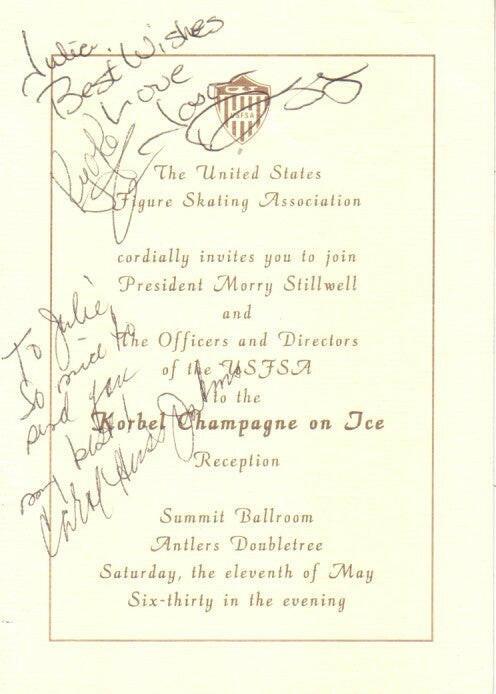 Julie,
Best Wishes
Love
USFSA
The United States
Figure Skating Association
cordially invites you to join
President Morry Stillwell
and
the Officers and Directors
of the USFSA
to the
Korbel Champagne on Ice
Reception
Summit Ballroom
Antlers Doubletree
Saturday, the eleventh of May
Six-thirty in the evening
To Julie,
So nice to
send you
my best!
Carol Heiss Jenkins